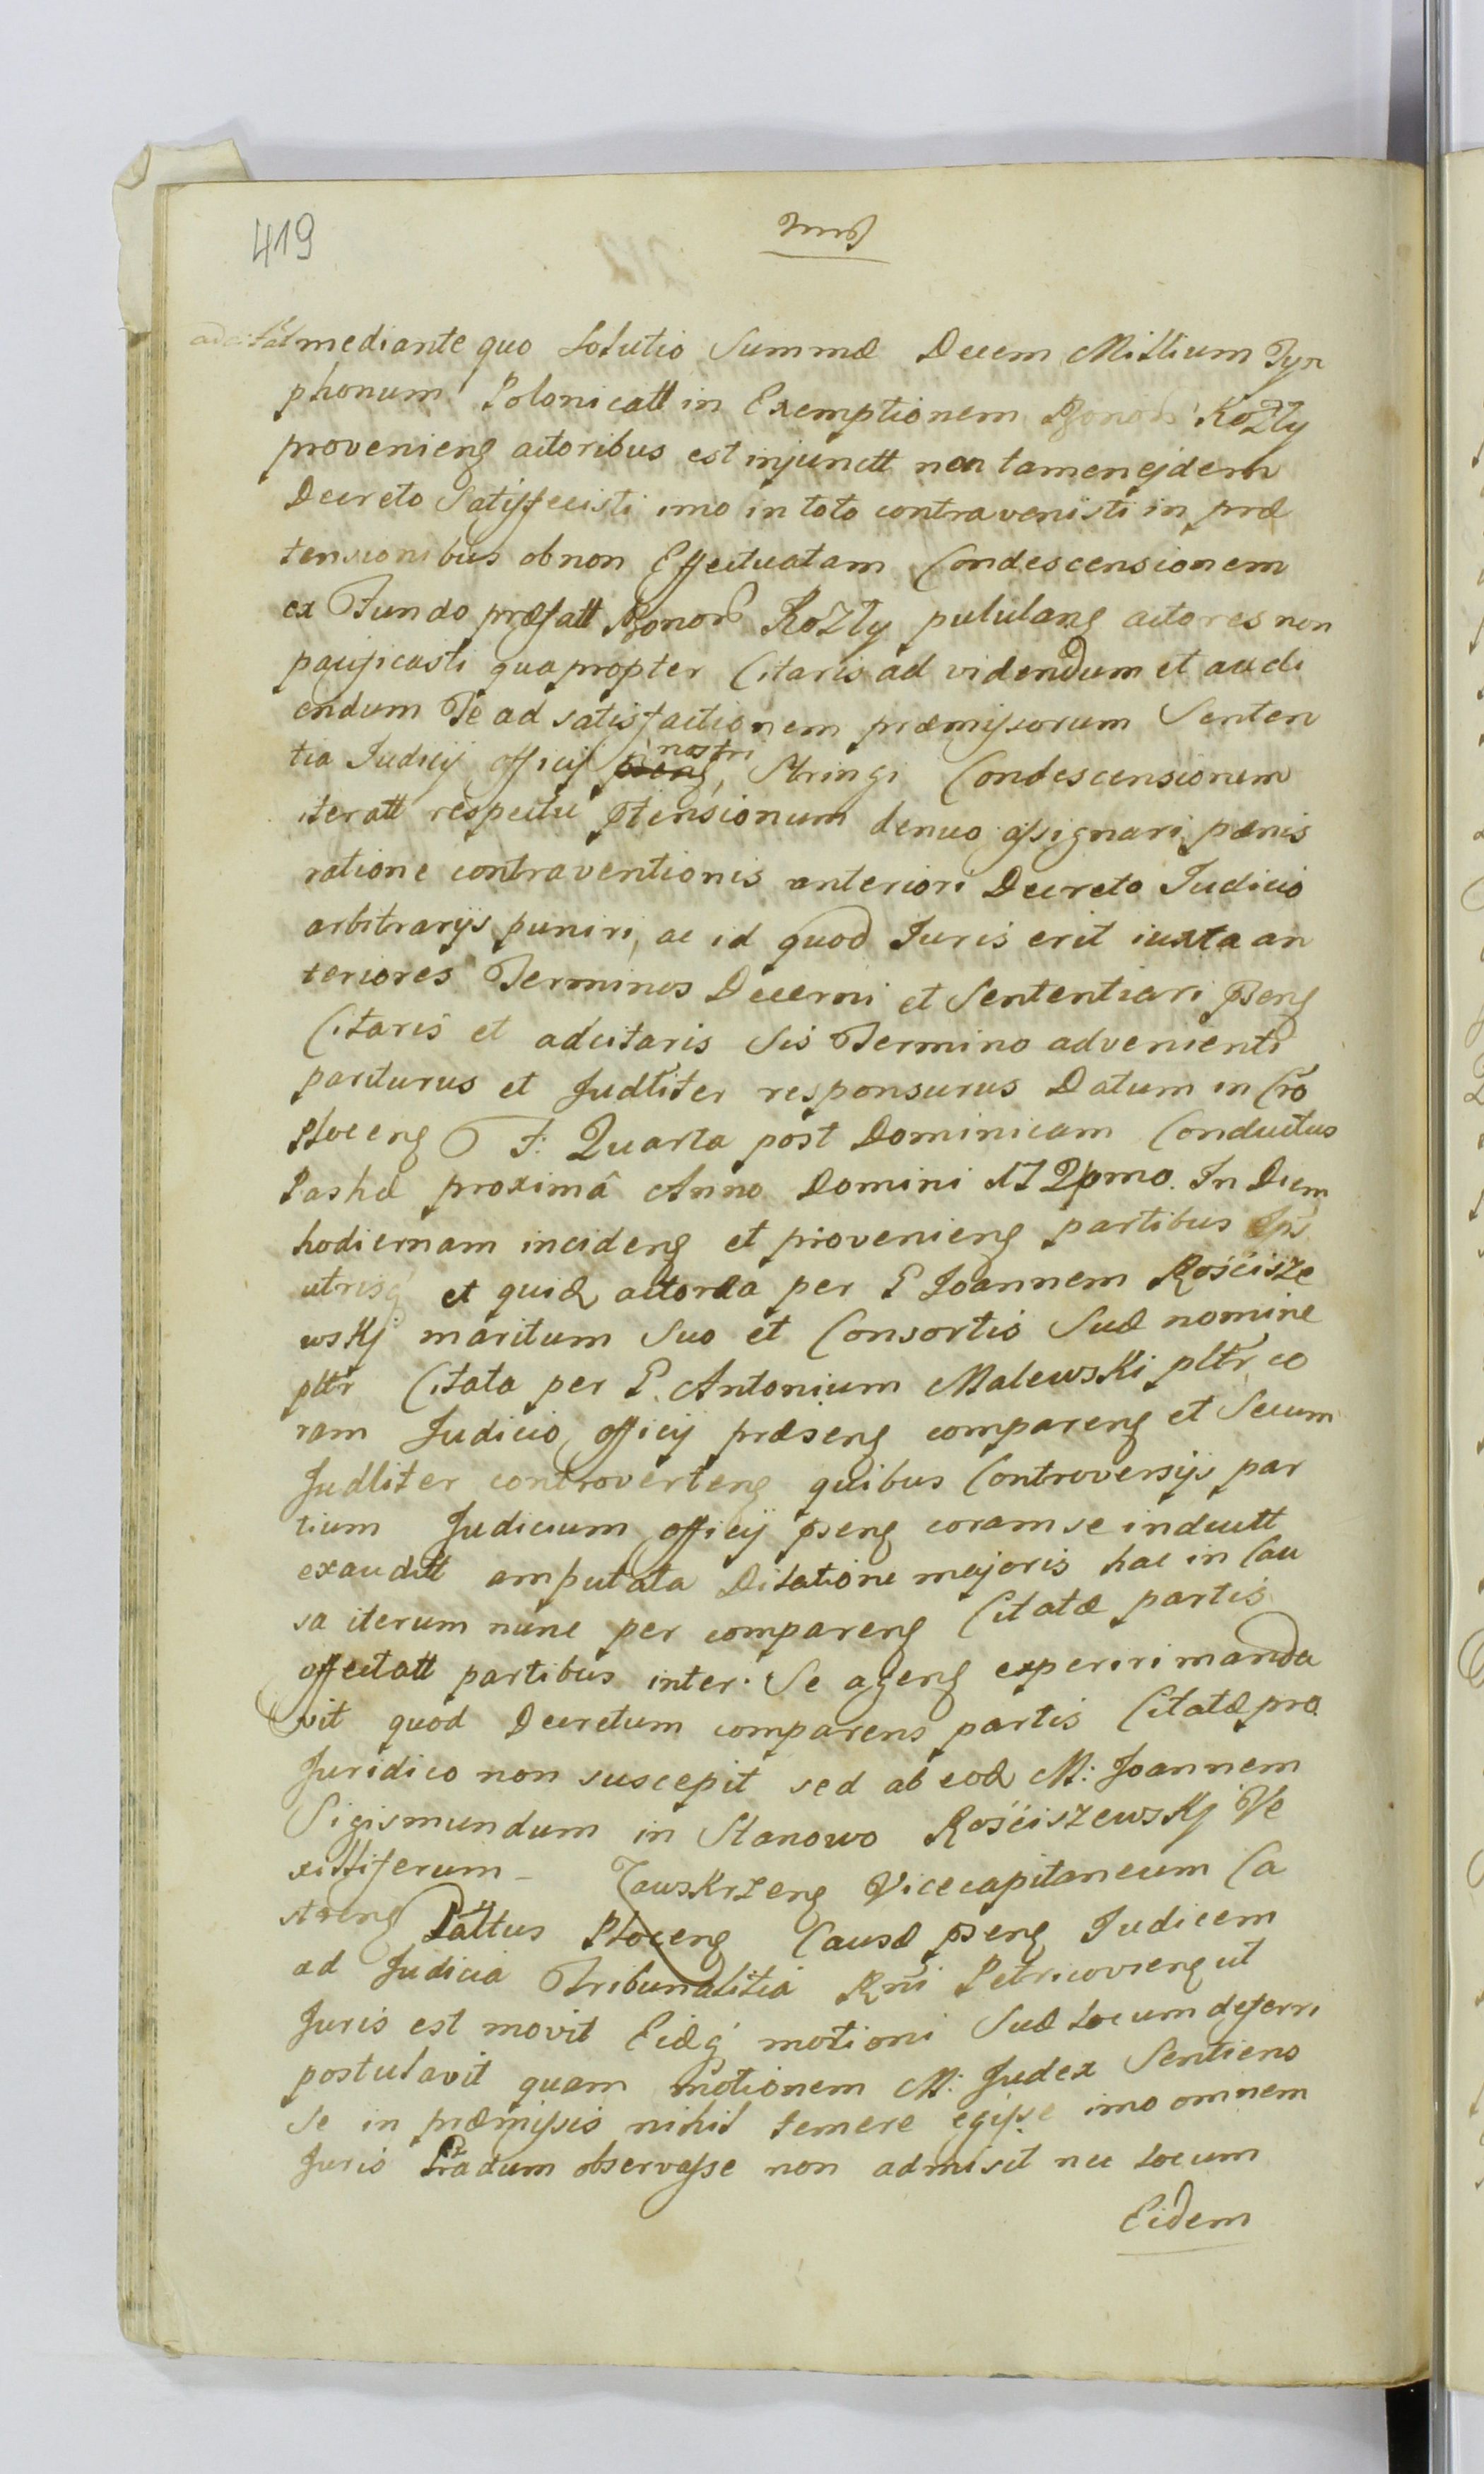 419
mediante quo Solutio Summæ Decem Millium Tyn
phonum Polonicatt in Exemptionem Bonor Kozły
provenieng actoribus est injunctt non tamen ejdem
Decreto Satisfecisti imo in toto contravenisti in præ
tensionibus ob non Effectuatam Condescensionem
ex Fundo præfatt Bonor Kozły pululang actores non
pacificasti quapropter Citaris ad videndum et audi
endum Te ad satisfactionem præmissorum Senten
tia Judicij officij nostri Stringi Condescensionem
iteratt respectu ptensionum denuo assignari pænis
ratione contraventionis anteriori Decreto Judicio
arbitrarijs puniri, ac id quod Juris erit iuxta an
teriores Terminos Decerni et Sententiari pseng
Citaris et adcitaris Sis Termino advenienti
pariturus et Judliter responsurus Datum in Cro
Ploceng F: Quarta post Dominicam Conductus
Paschæ proximâ Anno Domini 172pmo. In Diem
hodiernam incideng et provenieng partibus Ips
utrisq et quidẽ actorea per G Joannem Rościsze
wskj maritum Suo et Consortis Suæ nomine
pltr Citata per G. Antonium Malewski pltr co
ram Judicio officij præseng compareng et Secum
Judliter controverteng quibus Controversijs par
tium Judicium officij pseng coram se inductt
exauditt amputata Dilatione majoris hac in Cau
sa iterum nunc per compareng Citatæ partis
affectatt partibus inter Se ageng experiri manda
vit quod Decretum comparens partis Citatæ pro
Juridico non suscepit sed ab eod M: Joannem
Sigismundum in Stanowo Rościszewskj Ve
xilliferum Zawskrzeng Vicecapitaneum Ca
streng Pallttus Ploceng Causæ pseng Judicem
ad Judicia Tribunalitia Rni Petricovieng ut
Juris est movit Eidq motioni Suæ Locum deferri
postulavit quam motionem M: Judex Sentiens
Se in præmissis nihil temere egisse imo omnem
Juris Gradum observasse non admisit nec Locum
Eidem